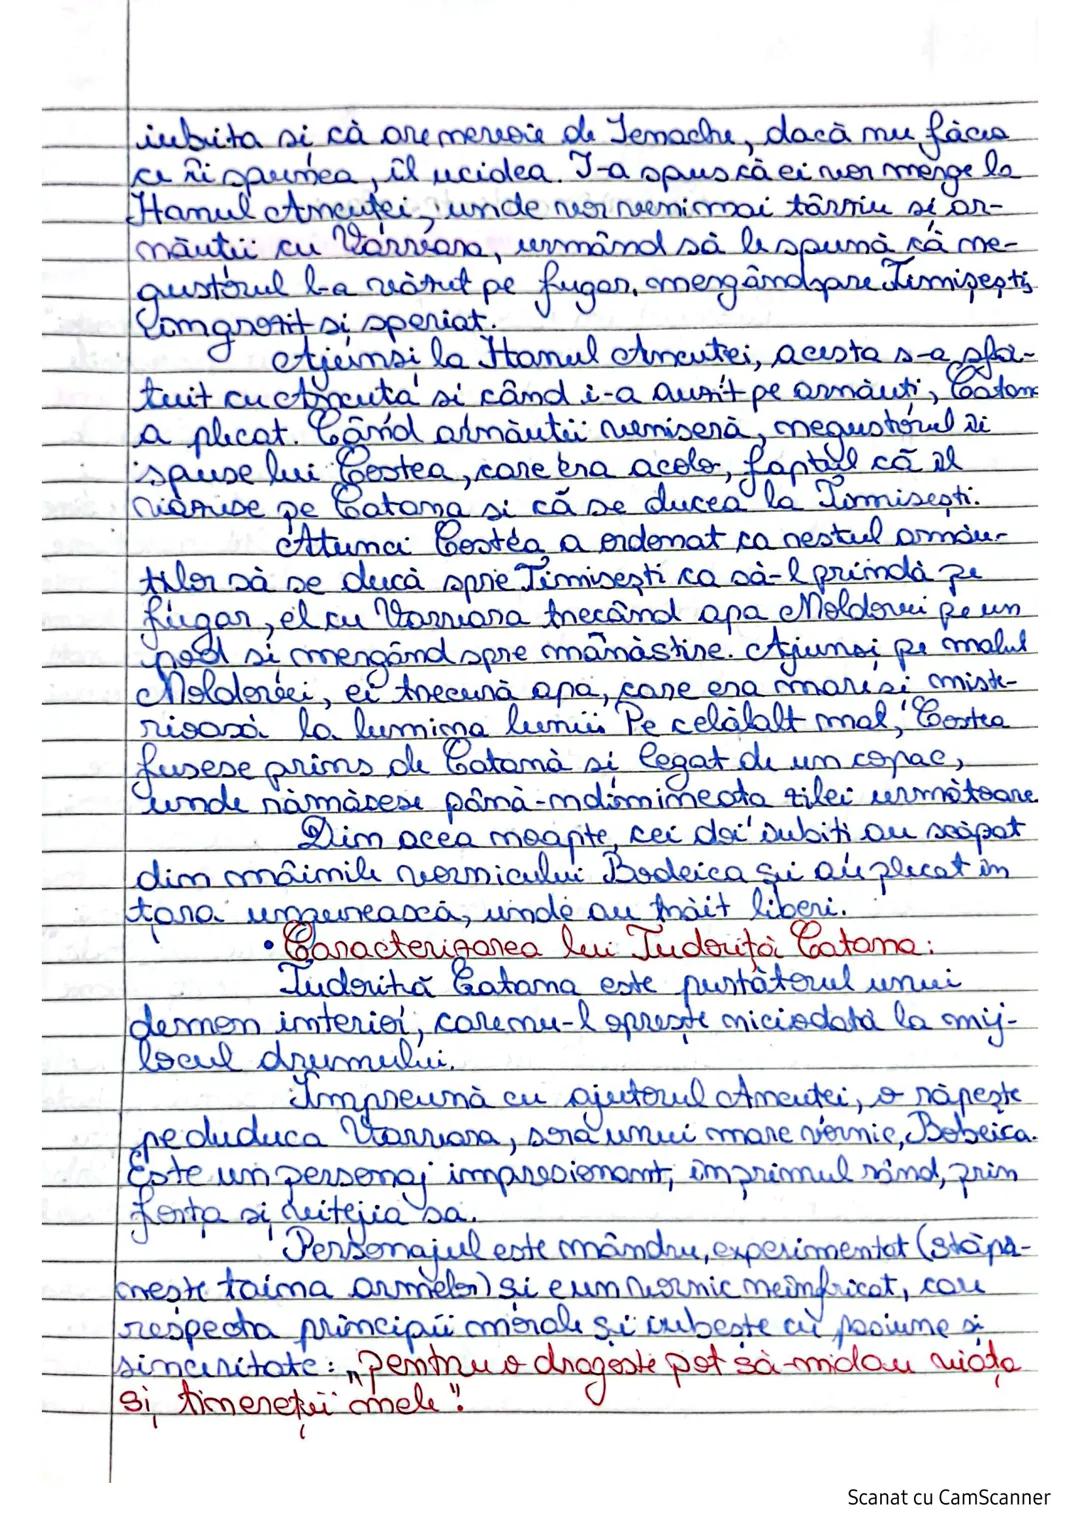 iubita si că are nevoie de Iemache, dacă nu făcea
ce îi spunea, îl ucidea. I-a spus că ei vor merge la
Hanul Ancuței, unde vor veni mai târziu si ar-
năuții cu Varvara, urmând să le spună că ne-
gustorul l-a văzut pe fugar, mergând spre Timișești
îngrozit si speriat.
Ajunsi la Hanul Ancutei, acesta s-a sfă-
tuit cu Ancuta si când i-a auzit pe arnăuti, Catana
a plecat. Când arnăutii veniseră, negustorul îi
spuse lui Costea, care era acolo, faptul că îl
văzuse pe Catana si că se ducea la Timisești.
Atunci Costea a ordonat ca restul arnău-
tilor să se ducă spre Timisești ca să-l prindă pe
fugar, el cu Varvara trecând apa Moldovei pe un
pod si mergând spre mânăstire. Ajunsi pe malul
Moldovei, ei trecură apa, care era mare si miste-
rioasă la lumina lunii. Pe celălalt mal, Costea
fusese prins de Catană si legat de un copac,
unde rămăsese până-n dimineata zilei următoare.
Din acea noapte, cei doi iubiti au scăpat
din mâinile vornicului Bodeica și au plecat în
tara ungurească, unde au trăit liberi.
• Caracterizarea lui Tudoriță Catana:
Tudorită Catana este purtătorul unui
demon interior, care nu-l oprește niciodată la mij-
locul drumului.
Împreună cu ajutorul Ancutei, o răpește
pe duduca Varvara, sora unui mare vornic, Bobeica.
Este un personaj impresionant, în primul rând, prin
forța si vitejia sa.
Personajul este mândru, experimentat (stăpâ-
nește taina armelor) și e un vornic neînfricat, care
respecta principii morale și iubeste cu pasiune si
sinceritate: „Pentru o dragoste pot să-mi dau viața
și tinereții mele".
Scanat cu CamScanner